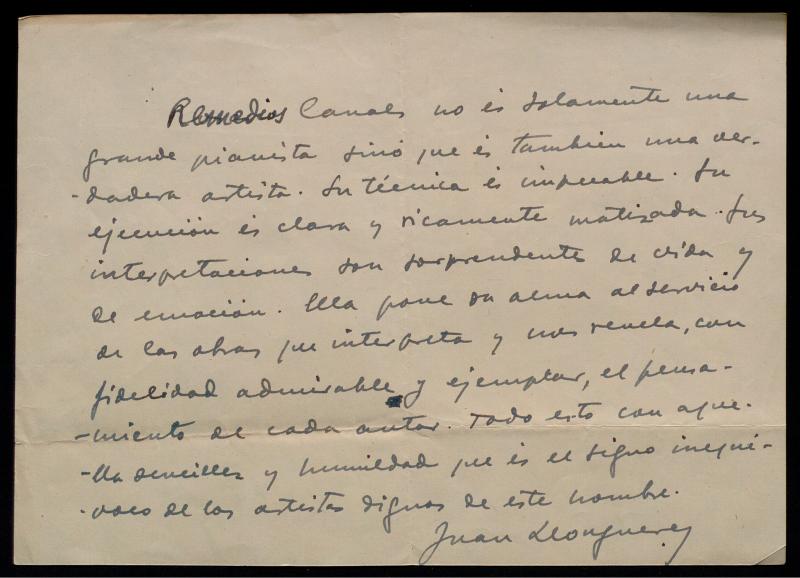 Remedios Canals no és solamente una
grande pianista sinó que és también una ver-
-dadera artista. Su técnica és impecable. Su
ejecución és clara y ricamente matizada. Sus
interpretaciones son sorprendentes de vida y
de emoción. Ella pone su alma al servicio
de las obras que interpreta y nos revela, con
fidelidad admirable y ejemplar, el pensa-
-miento de cada autor. Todo esto con aque-
-lla sencillez y humildad que és el signo inequí-
-voco de los artistas dignos de este nombre.
Juan Llongueres